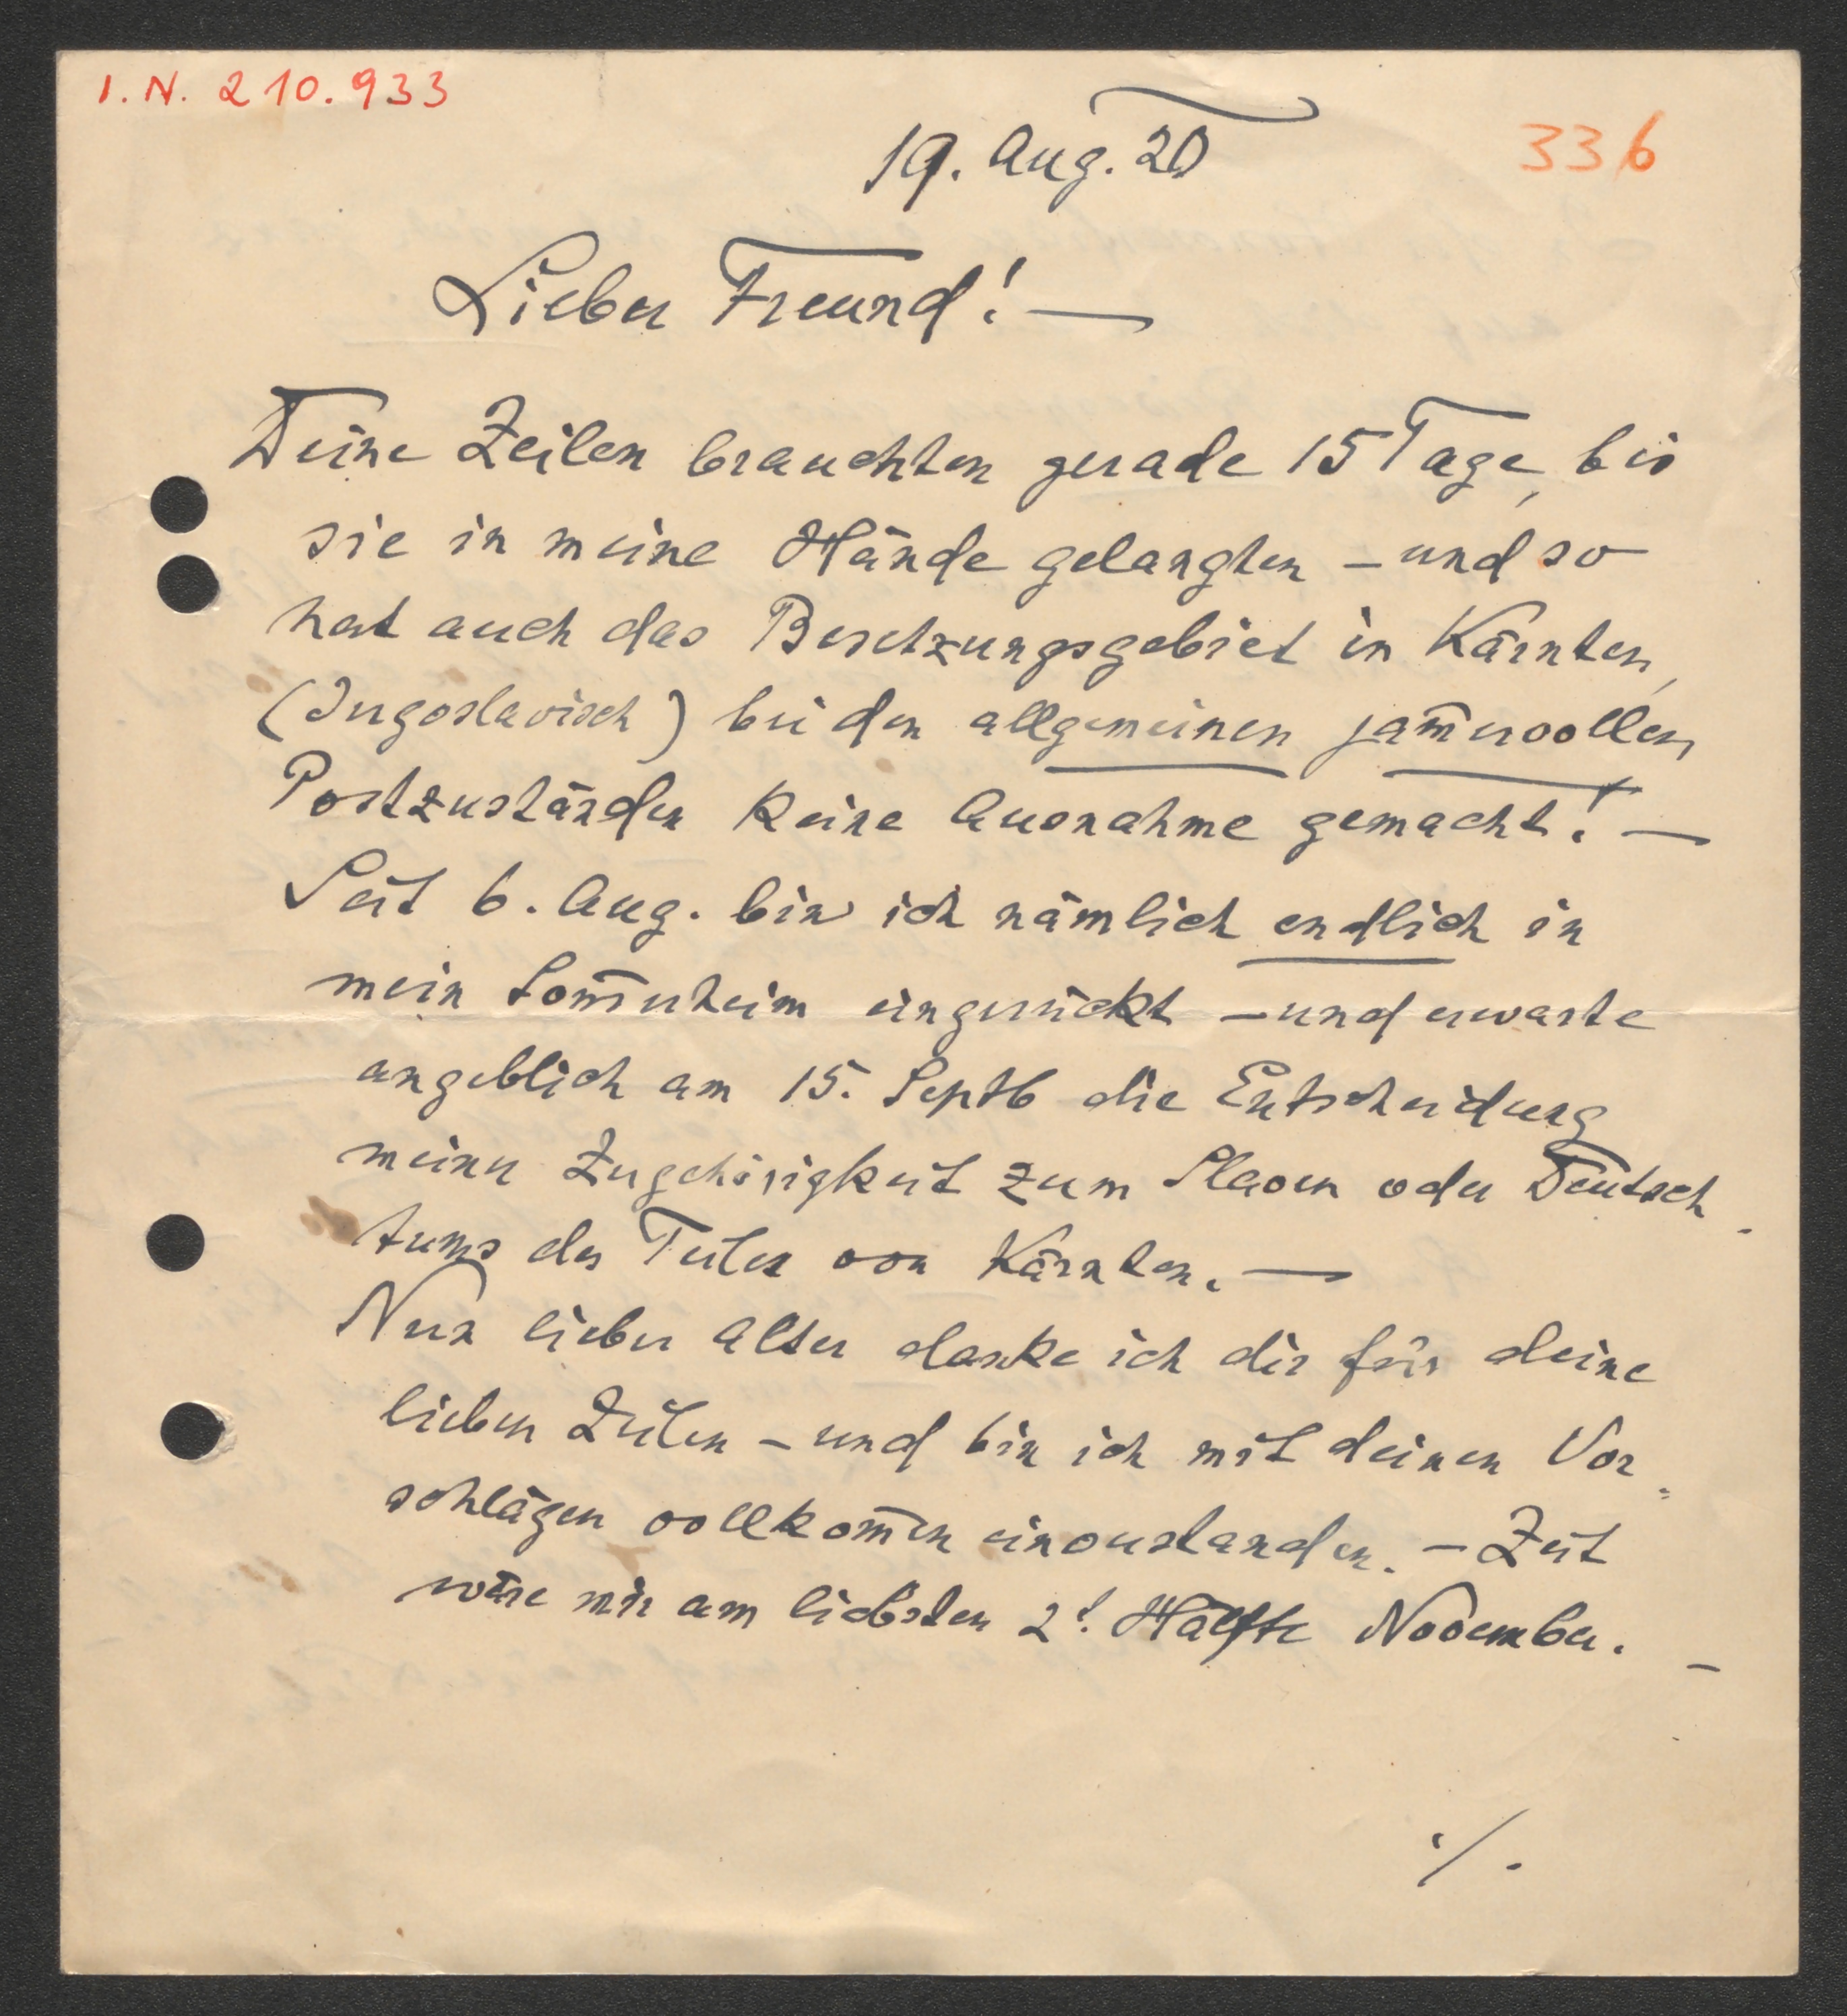 I.N. 210.933
336
19. Aug. 20
Lieber Freund! —
Deine Zeilen brauchten gerade 15 Tage, bis
sie in meine Hände gelangten – und so
hat auch das Besetzungsgebiet in Kärnten,
(Jugoslavisch) bei den allgemeinen jam̄ervollen
Postzuständen keine Ausnahme gemacht! —
Seit 6. Aug. bin ich nämlich endlich in
mein Som̄erheim eingerückt – und erwarte
angeblich am 15. Septb die Entscheidung
meiner Zugehörigkeit zum Slaven oder Deutsch-
tums des Teiles von Kärnten. —
Nun lieber Alter danke ich dir für deine
lieben Zeilen – und bin ich mit deinen Vor=
schlägen vollkom̄en einverstanden. – Zeit
wäre mir am liebsten 2t. Hälfte November. –
./.